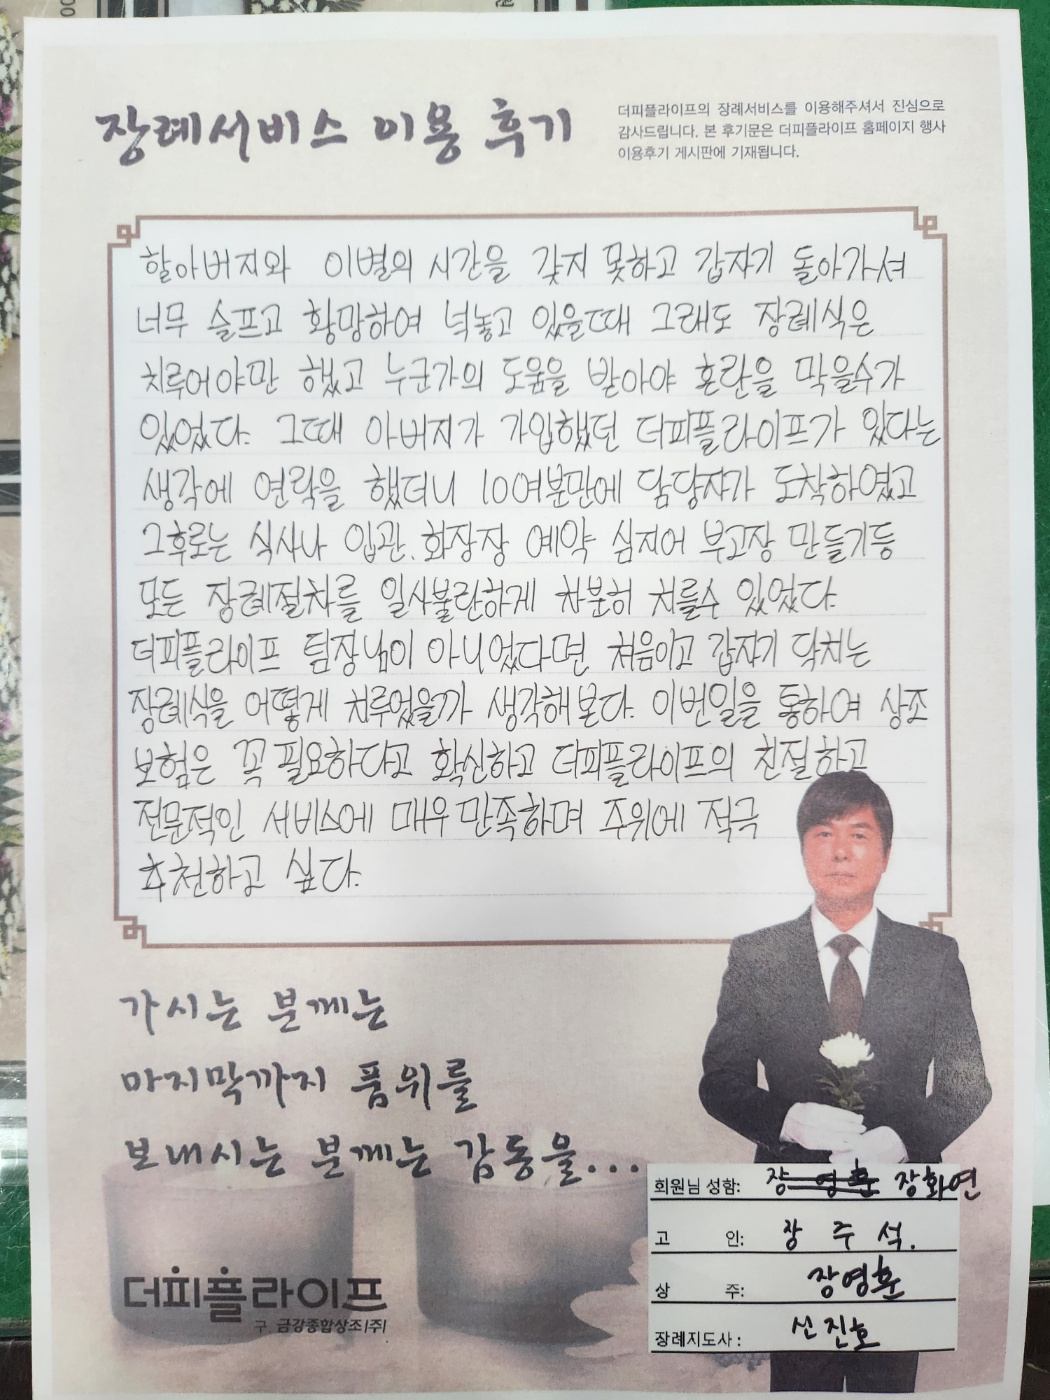 장례서비스 이용 후기
더피플라이프의 장례서비스를 이용해주셔서 진심으로
감사드립니다. 본 후기문은 더피플라이프 홈페이지 행사
이용후기 게시판에 기재됩니다.
할아버지와 이별의 시간을 갖지 못하고 갑자기 돌아가셔
너무 슬프고 황망하여 넋놓고 있을때 그래도 장례식은
치루어야만 했고 누군가의 도움을 받아야 혼란을 막을수가
있었다. 그때 아버지가 가입했던 더피플라이프가 있다는
생각에 연락을 했더니 10여분만에 담당자가 도착하였고
그후로는 식사나 입관, 화장장 예약 심지어 부고장 만들기등
모든 장례절차를 일사불란하게 차분히 치를수 있었다.
더피플라이프 팀장님이 아니었다면 처음이고 갑자기 닥치는
장례식을 어떻게 치루었을까 생각해본다. 이번일을 통하여 상조
보험은 꼭 필요하다고 확신하고 더피플라이프의 친절하고
전문적인 서비스에 매우 만족하며 주위에 적극
추천하고 싶다.
가시는 분께는
마지막까지 품위를
보내시는 분께는 감동을...
회원님 성함: 장영훈 장화연
고 인: 장 주 석.
상 주: 장영훈
장례지도사: 신진호
더피플라이프
구 금강종합상조(주)